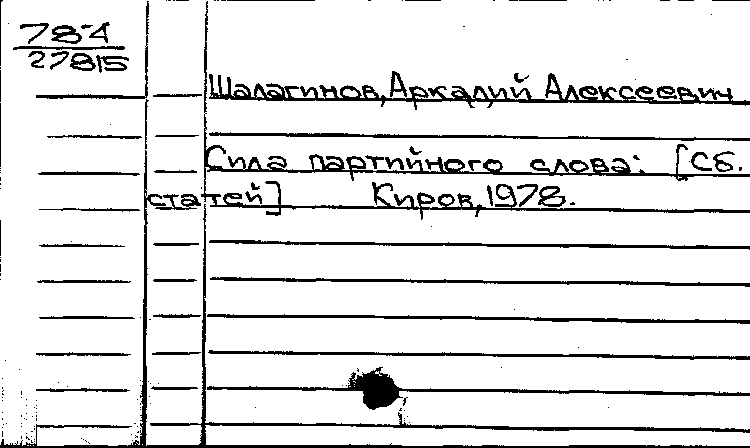 78-4
27815
Шалагинов, Аркадий Алексеевич
Сила партийного слова: [Сб.
статей] Киров, 1978.